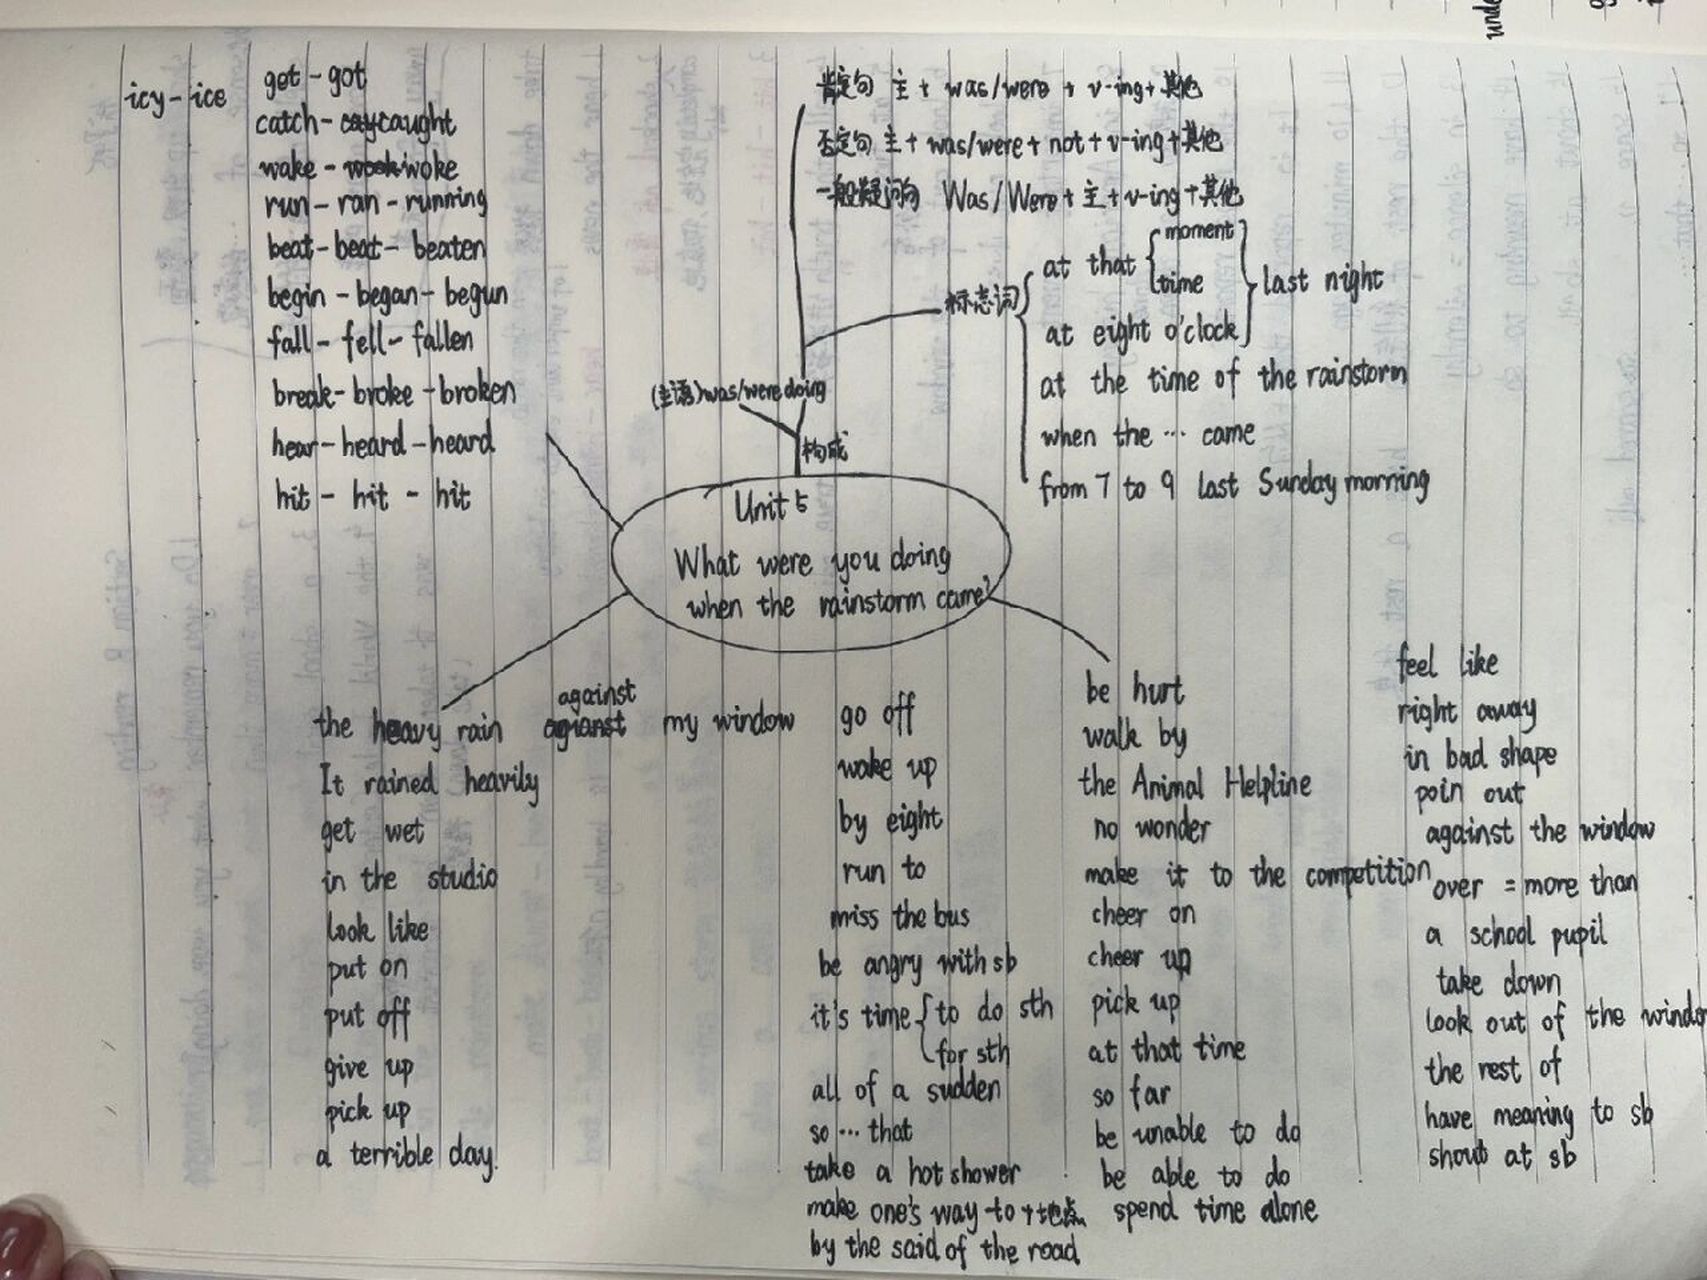 icy - ice
get - got
catch - caught
wake - woke
run - ran - running
beat - beat - beaten
begin - began - begun
fall - fell - fallen
break - broke - broken
hear - heard - heard
hit - hit - hit
肯定句 主 + was/were + v-ing + 其他
否定句 主 + was/were + not + v-ing + 其他
一般疑问句 Was/Were + 主 + v-ing + 其他
标志词
at that { moment
time
at eight o'clock
} last night
at the time of the rainstorm
when the ... came
from 7 to 9 last Sunday morning
(主语) was/were doing
构成
Unit 5
What were you doing
when the rainstorm came?
the heavy rain against my window
It rained heavily
get wet
in the studio
look like
put on
put off
give up
pick up
a terrible day.
go off
wake up
by eight
run to
miss the bus
be angry with sb
it's time { to do sth
for sth
all of a sudden
so ... that
take a hot shower
make one's way to + 地点
by the said of the road
be hurt
walk by
the Animal Helpline
no wonder
make it to the competition
cheer on
cheer up
pick up
at that time
so far
be unable to do
be able to do
spend time alone
feel like
right away
in bad shape
poin out
against the window
over = more than
a school pupil
take down
look out of the window
the rest of
have meaning to sb
shout at sb